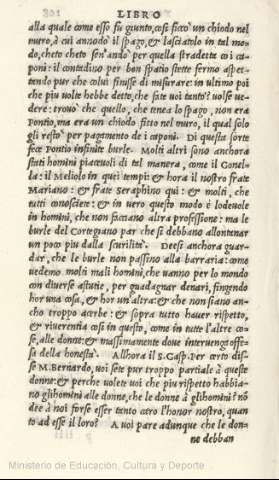 LIBRO
alla quale come esso fu giunto, cosi ficcò un chiodo nel
muro, à cui annodò il spago, & lasciatolo in tal mo-
do, cheto cheto sen'andò per quella stradetta co i ca-
poni: il contadino per bon spatio stette fermo aspet-
tando pur che colui finisse di misurare: in ultimo poi
che piu volte hebbe detto, che fate voi tanto? volse ve-
dere: trovò che quello, che tenea lo spago, non era
Pontio, ma era un chiodo fitto nel muro, il qual solo
gli restò per pagamento de i caponi. Di questa sorte
fece Pontio infinite burle. Molti altri sono anchora
stati homini piacevoli di tal manera, come il Gonel-
la: il Meliolo in quei tempi: & hora il nostro frate
Mariano: & frate Seraphino qui: & molti, che
tutti conoscete: & in vero questo modo è lodevole
in homini, che non facciano altra professione: ma le
burle del Cortegiano par che si debbano allontanar
un poco piu dalla scurilità. Deesi anchora guar-
dar, che le burle non passino alla barraria: come
vedemo molti mali homini, che vanno per lo mondo
con diverse astutie, per guadagnar denari, fingendo
hor una cosa, & hor un'altra: & che non siano an-
cho troppo acerbe: & sopra tutto haver rispetto,
& riverentia cosi in questo, come in tutte l'altre co-
se, alle donne: & massimamente dove intervenga offe-
sa della honestà. Allhora il S. Gasp. Per certo dis-
se M. Bernardo, voi sete pur troppo partiale à queste
donne: & perche volete voi che piu rispetto habbia-
no glihomini alle donne, che le donne à glihomini? nō
dee à noi forse esser tanto caro l'honor nostro, quan-
to ad esse il loro? A voi pare adunque che le don-
ne debban
Ministerio de Educación, Cultura y Deporte